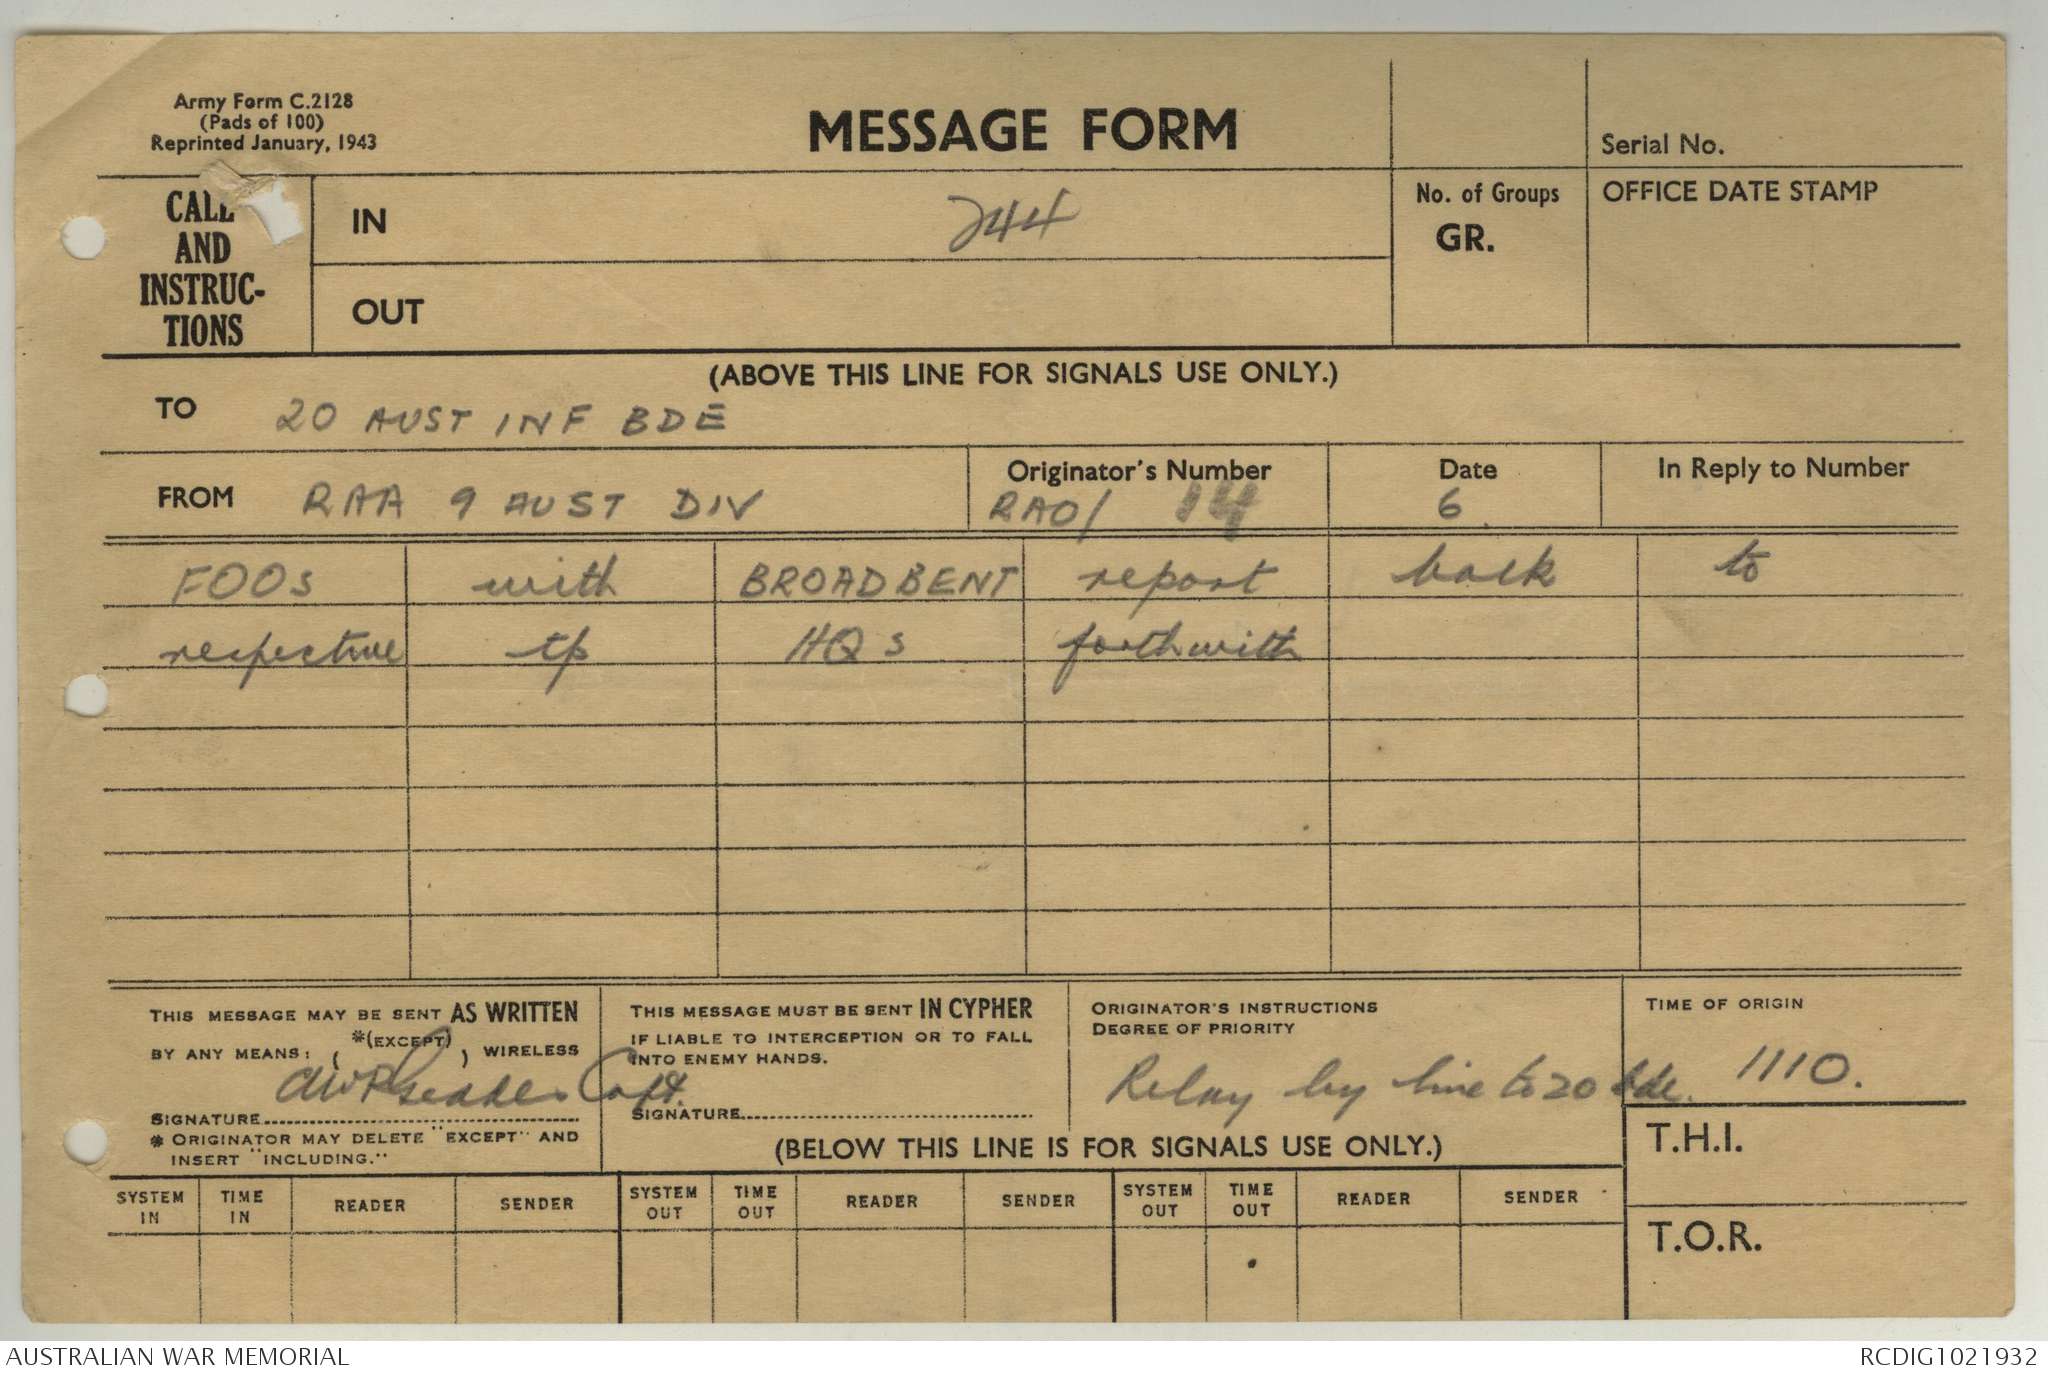 Army Form C.2128
(Pads of 100)
Reprinted January, 1943
MESSAGE FORM
Serial No.
CALL AND INSTRUC-TIONS
IN
244
No. of Groups
GR.
OFFICE DATE STAMP
OUT
(ABOVE THIS LINE FOR SIGNALS USE ONLY.)
TO 20 AUST INF BDE
FROM RAA 9 AUST DIV
Originator's Number
RAO/ 14
Date
6
In Reply to Number
FOOs with BROADBENT report back to
respective tp HQs forthwith
THIS MESSAGE MAY BE SENT AS WRITTEN
BY ANY MEANS: ( *(EXCEPT) ) WIRELESS
Capt.
SIGNATURE
* ORIGINATOR MAY DELETE "EXCEPT" AND
INSERT "INCLUDING."
THIS MESSAGE MUST BE SENT IN CYPHER
IF LIABLE TO INTERCEPTION OR TO FALL
INTO ENEMY HANDS.
SIGNATURE
ORIGINATOR'S INSTRUCTIONS
DEGREE OF PRIORITY
Relay by line to 20 bde.
TIME OF ORIGIN
1110.
(BELOW THIS LINE IS FOR SIGNALS USE ONLY.)
T.H.I.
SYSTEM IN TIME IN READER SENDER SYSTEM OUT TIME OUT READER SENDER SYSTEM OUT TIME OUT READER SENDER
T.O.R.
AUSTRALIAN WAR MEMORIAL
RCDIG1021932